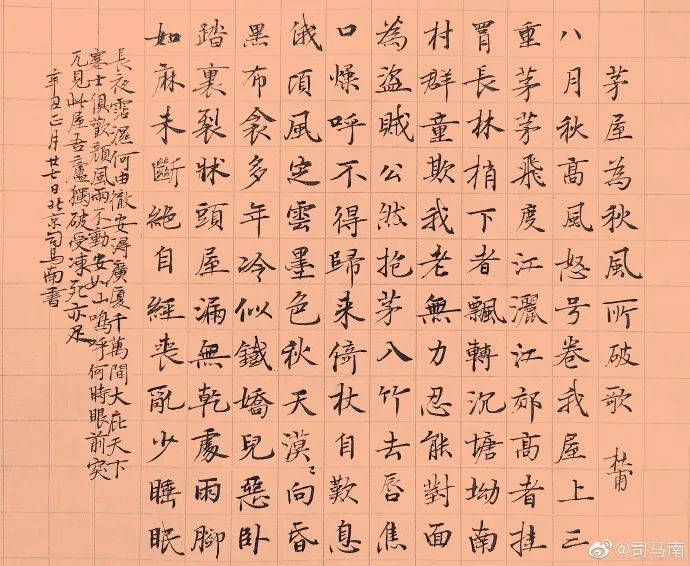 茅屋為秋風所破歌 杜甫
八月秋高風怒号卷我屋上三
重茅茅飛度江灑江郊高者挂
罥長林梢下者飄轉沉塘坳南
村群童欺我老無力忍能對面
為盜賊公然抱茅入竹去唇焦
口燥呼不得歸来倚杖自歎息
俄頃風定雲墨色秋天漠〻向昏
黑布衾多年冷似鐵嬌兒惡卧
踏裏裂牀頭屋漏無乾處雨腳
如麻未斷絕自經喪亂少睡眠
長夜霑濕何由徹安得廣廈千萬間大庇天下
寒士俱歡顏風雨不動安如山嗚呼何時眼前突
兀見此屋吾廬獨破受凍死亦足
辛丑月廿七日北京司马南書
@司马南